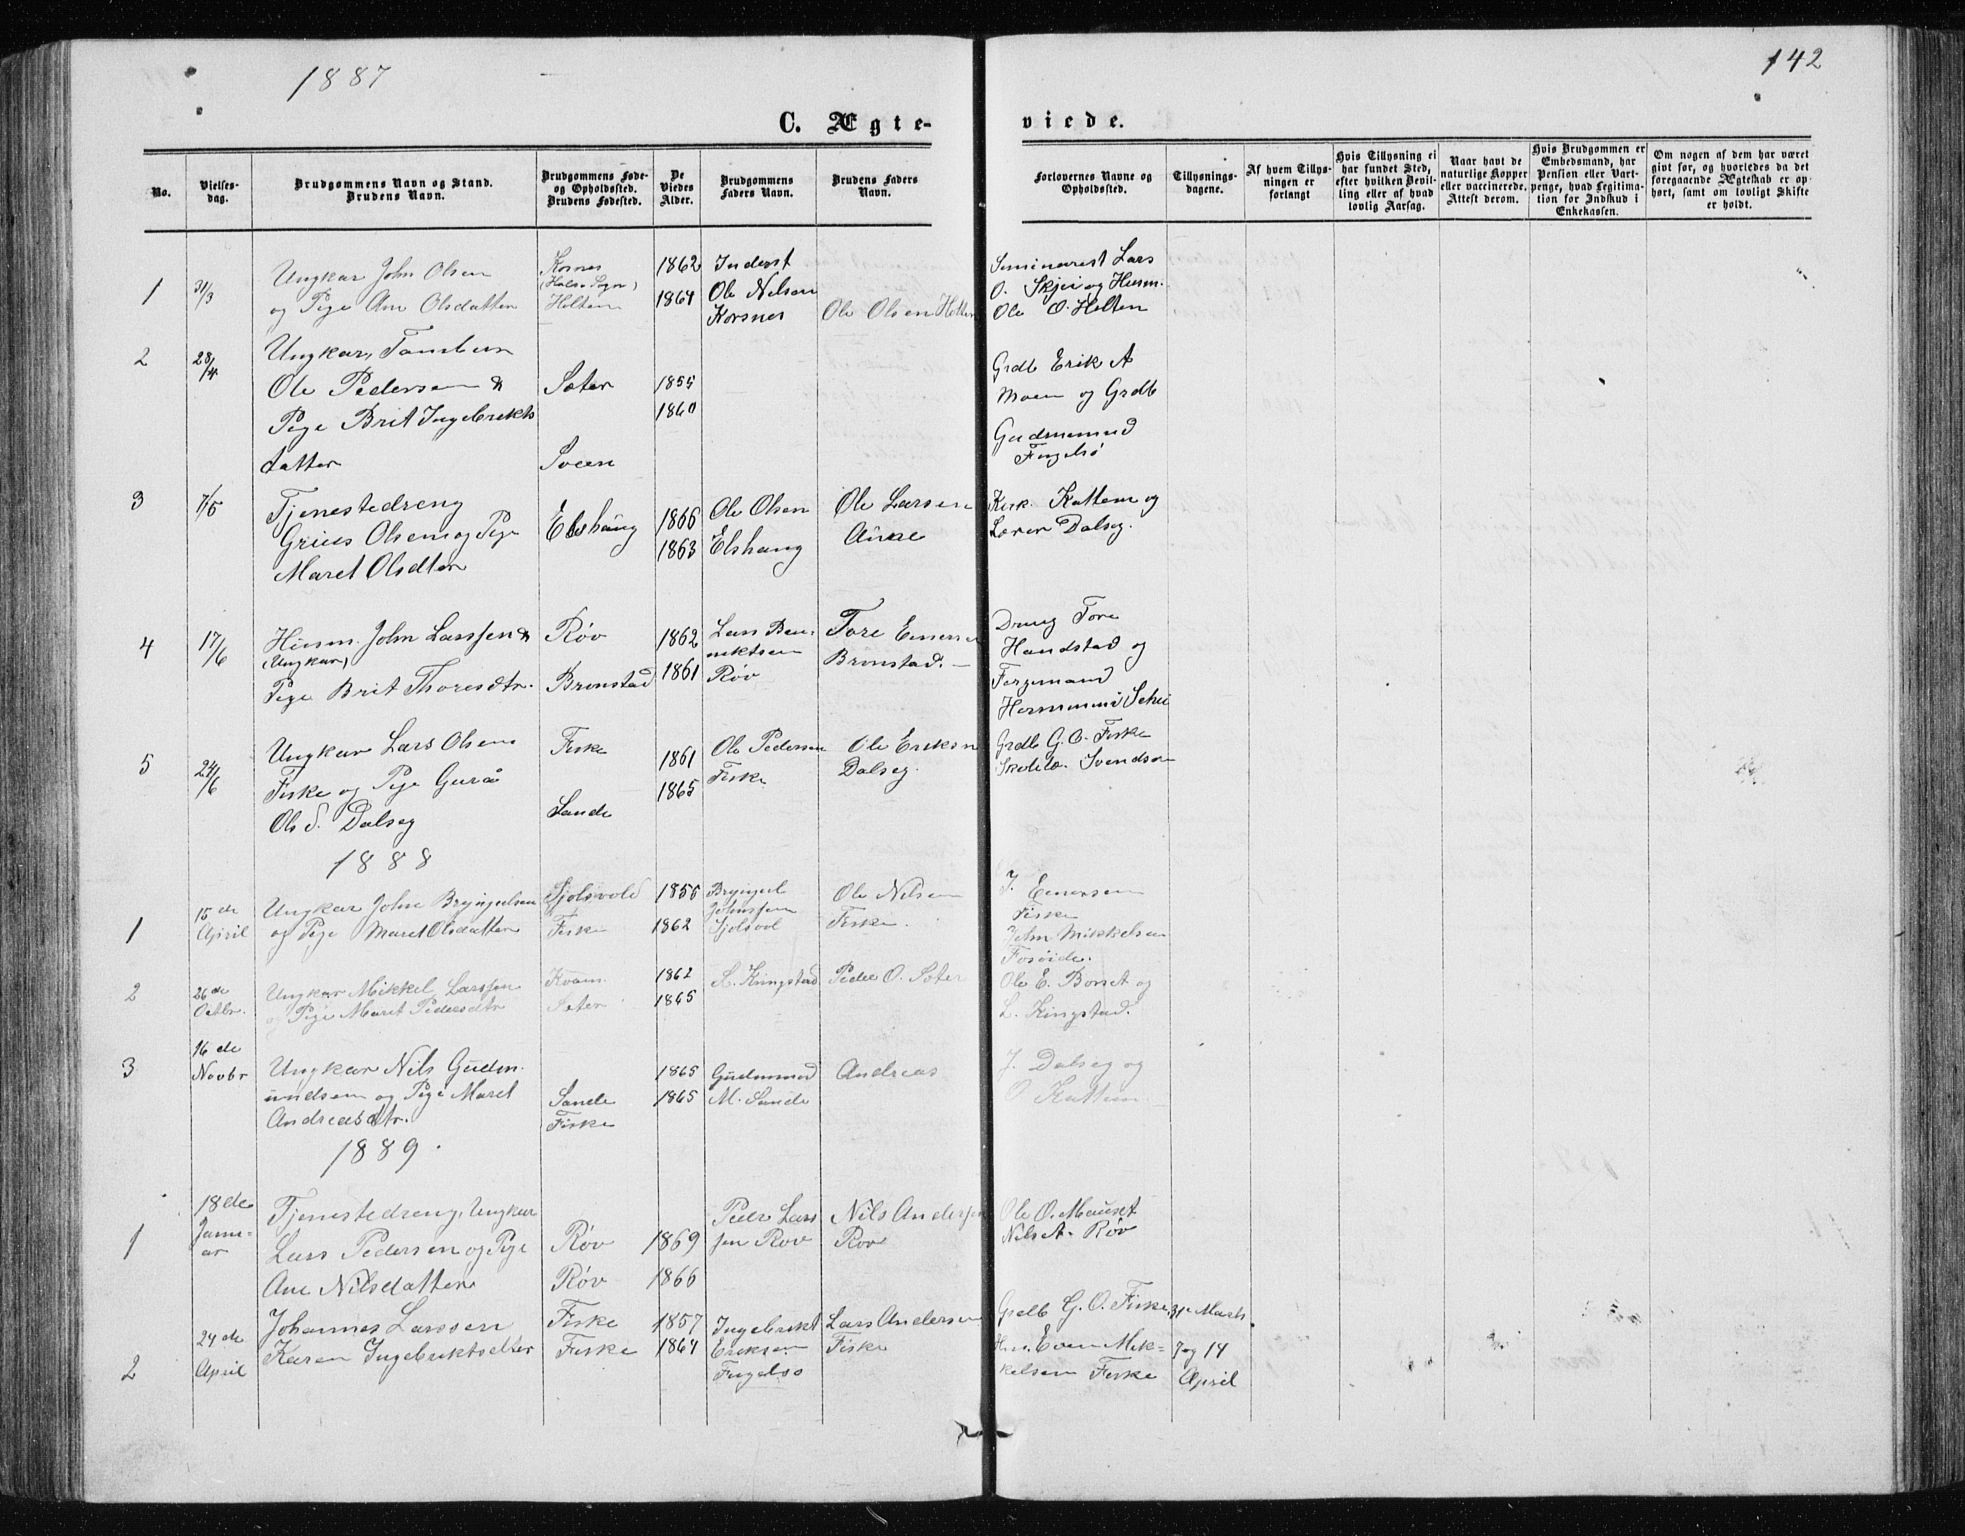 1887
142
C. Ægte-
viede.
No.
Vielses-
dag.
Brudgommens Navn og Stand.
Brudens Navn.
Brudgommens Føde-
og Opholdssted.
Brudens Fødested.
De
Viedes
Alder.
Brudgommens
Faders Navn.
Brudens Faders
Navn.
Forlovernes Navne og
Opholdssted.
Tillysnings-
dagene.
Af hvem Tillys-
ningen er
forlangt
Hvis Tillysning ei
har fundet Sted,
efter hvilken Bevil-
ling eller af hvad
lovlig Aarsag.
Naar havt de
naturlige Kopper
eller vaccinerede.
Attest derom.
Hvis Brudgommen er
Embedsmand, har
Pension eller Vart-
penge, hvad Legitima-
tion for Indskud i
Enkekassen.
Om nogen af dem har været
gift før, og hvorledes da det
foregaaende Ægteskab er op-
hørt, samt om lovligt Skifte
er holdt.
1
31/3
Ungkar John Olsen
og Pige Ane Olsdatter
Korsnes
(Halse Sogn)
Holten
1862
1864
Inderst
Ole Nilsen
Korsnes
Ole Olsen Holten
Seminarist Lars
O. Skjei og Husm.
Ole O. Holten
2
28/4
Ungkar, Tambur
Ole Pedersen &
Pige Brit Ingebrikts
datter
Sæter
Sveen
1855
1860
Grdb Erik A
Moen og Grdb
Gudmumd
Fugelsø
3
7/5
Tjenestedreng
Grius Olsen og Pige
Maret Olsdter
Elshaug
1866
1863
Ole Olsen
Elshaug
Ole Larsen
Aune
Kirk. Kattem og
Lærer Dalseg.
4
17/6
Husm. John Larssen &
(Ungkar)
Pige Brit Thoresdtr.
Røv
Brønstad
1862
1861
Lars Ben-
niktsen
Røv
Tore Einersen
Brønstad.
Dreng Tore
Handstad og
Fergemand
Hermunnd Schei
5
24/6
Ungkar Lars Olsen
Fiske og Pige Gurå
Ols d. Dalseg
Fiske
Sande
1861
1865
Ole Pedersen
Fiske
Ole Eriksn
Dalseg.
Grdb G. O. Fiske
Skolelæ. Svendsen
1888
1
15de
April
Ungkar John Bryngelsen
og Pige Maret Olsdatter
Sjølsvold
Fiske
1856
1862
Bryngel
Johnssen
Sjølsvol
Ole Nilsen
Fiske.
J. Einersen
Fiske
John Mikkelsen
Fosøide.
2
26de
Octbr.
Ungkar Mikkel Larssen
og Pige Maret Pedersdtr
Kvam
Sæter
1862
1865
L. Kingstad
Peder O. Sæter
Ole E. Borset og
L. Kingstad.
3
16 de
Novbr
Ungkar Nils Gudm
undsen og Pige Maret
Andreasdtr.
Sande
Fiske
1865
1865
Gudmund
M. Sande
Andreas
J. Dalseg og
O. Kattem
1889.
1
18de
Janu-
ar
Tjenestedreng, Ungkar
Lars Pedersen og Pige
Ane Nilsdatter
Røv
Røv
1869
1866
Pedr Lars
sen Røv
Nils Andersen
Røv
Ole O. Mauset
Nils A. Røv
2
24 de
April
Johannes Larssen
Karen Ingebriktsdtter
Fiske
Fiske
1857
1864
Ingebrikt
Eriksen
Fugelsø
Lars Andersen
Fiske
Grdb G. O. Fiske
Hm. Even Mik-
kelsen Fiske
31e Marts
7 og 14
April